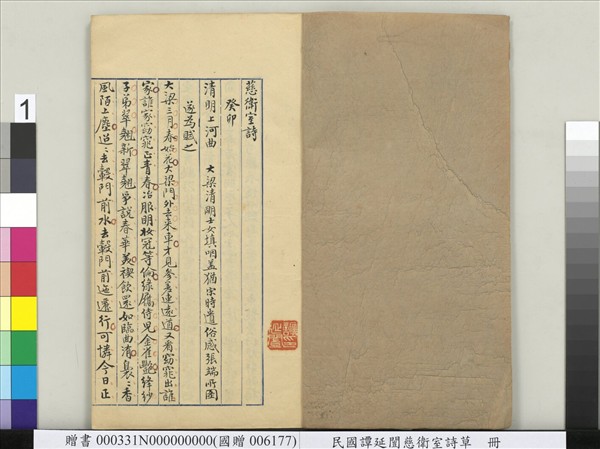 慈衛室詩
癸卯
清明上河曲 大梁清明士女填咽蓋猶宋時遺俗感張端所圖
遂為賦之
大梁三月春如花大梁門外去來車才見參差連遠道又看窈窕出誰
家誰家窈窕正青春冶服明妝冠等倫綠鷹侍兒金雀艷絳紗
子弟翠翹新翠翹爭說春華美禊飲還如臨曲清裊裊香
風陌上塵迢迢去轂門前水去轂門前迤邐行可憐今日正
1
贈書 000331N000000000(國贈 006177)
民國譚延闓慈衛室詩草 冊